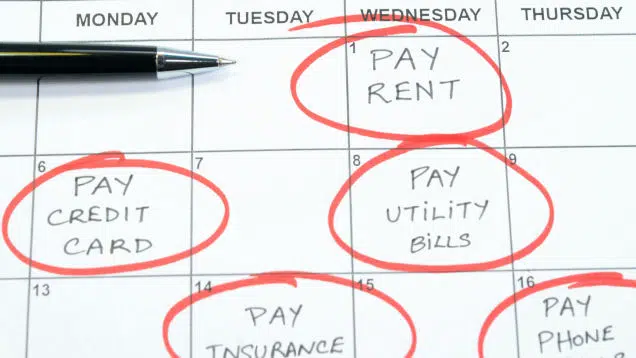 MONDAY TUESDAY WEDNESDAY THURSDAY
1 2
PAY
RENT
6 7 8 9
PAY
CREDIT
CARD
PAY
UTILITY
BILLS
13 14 15 16
PAY
INSURANCE
PAY
PHONE